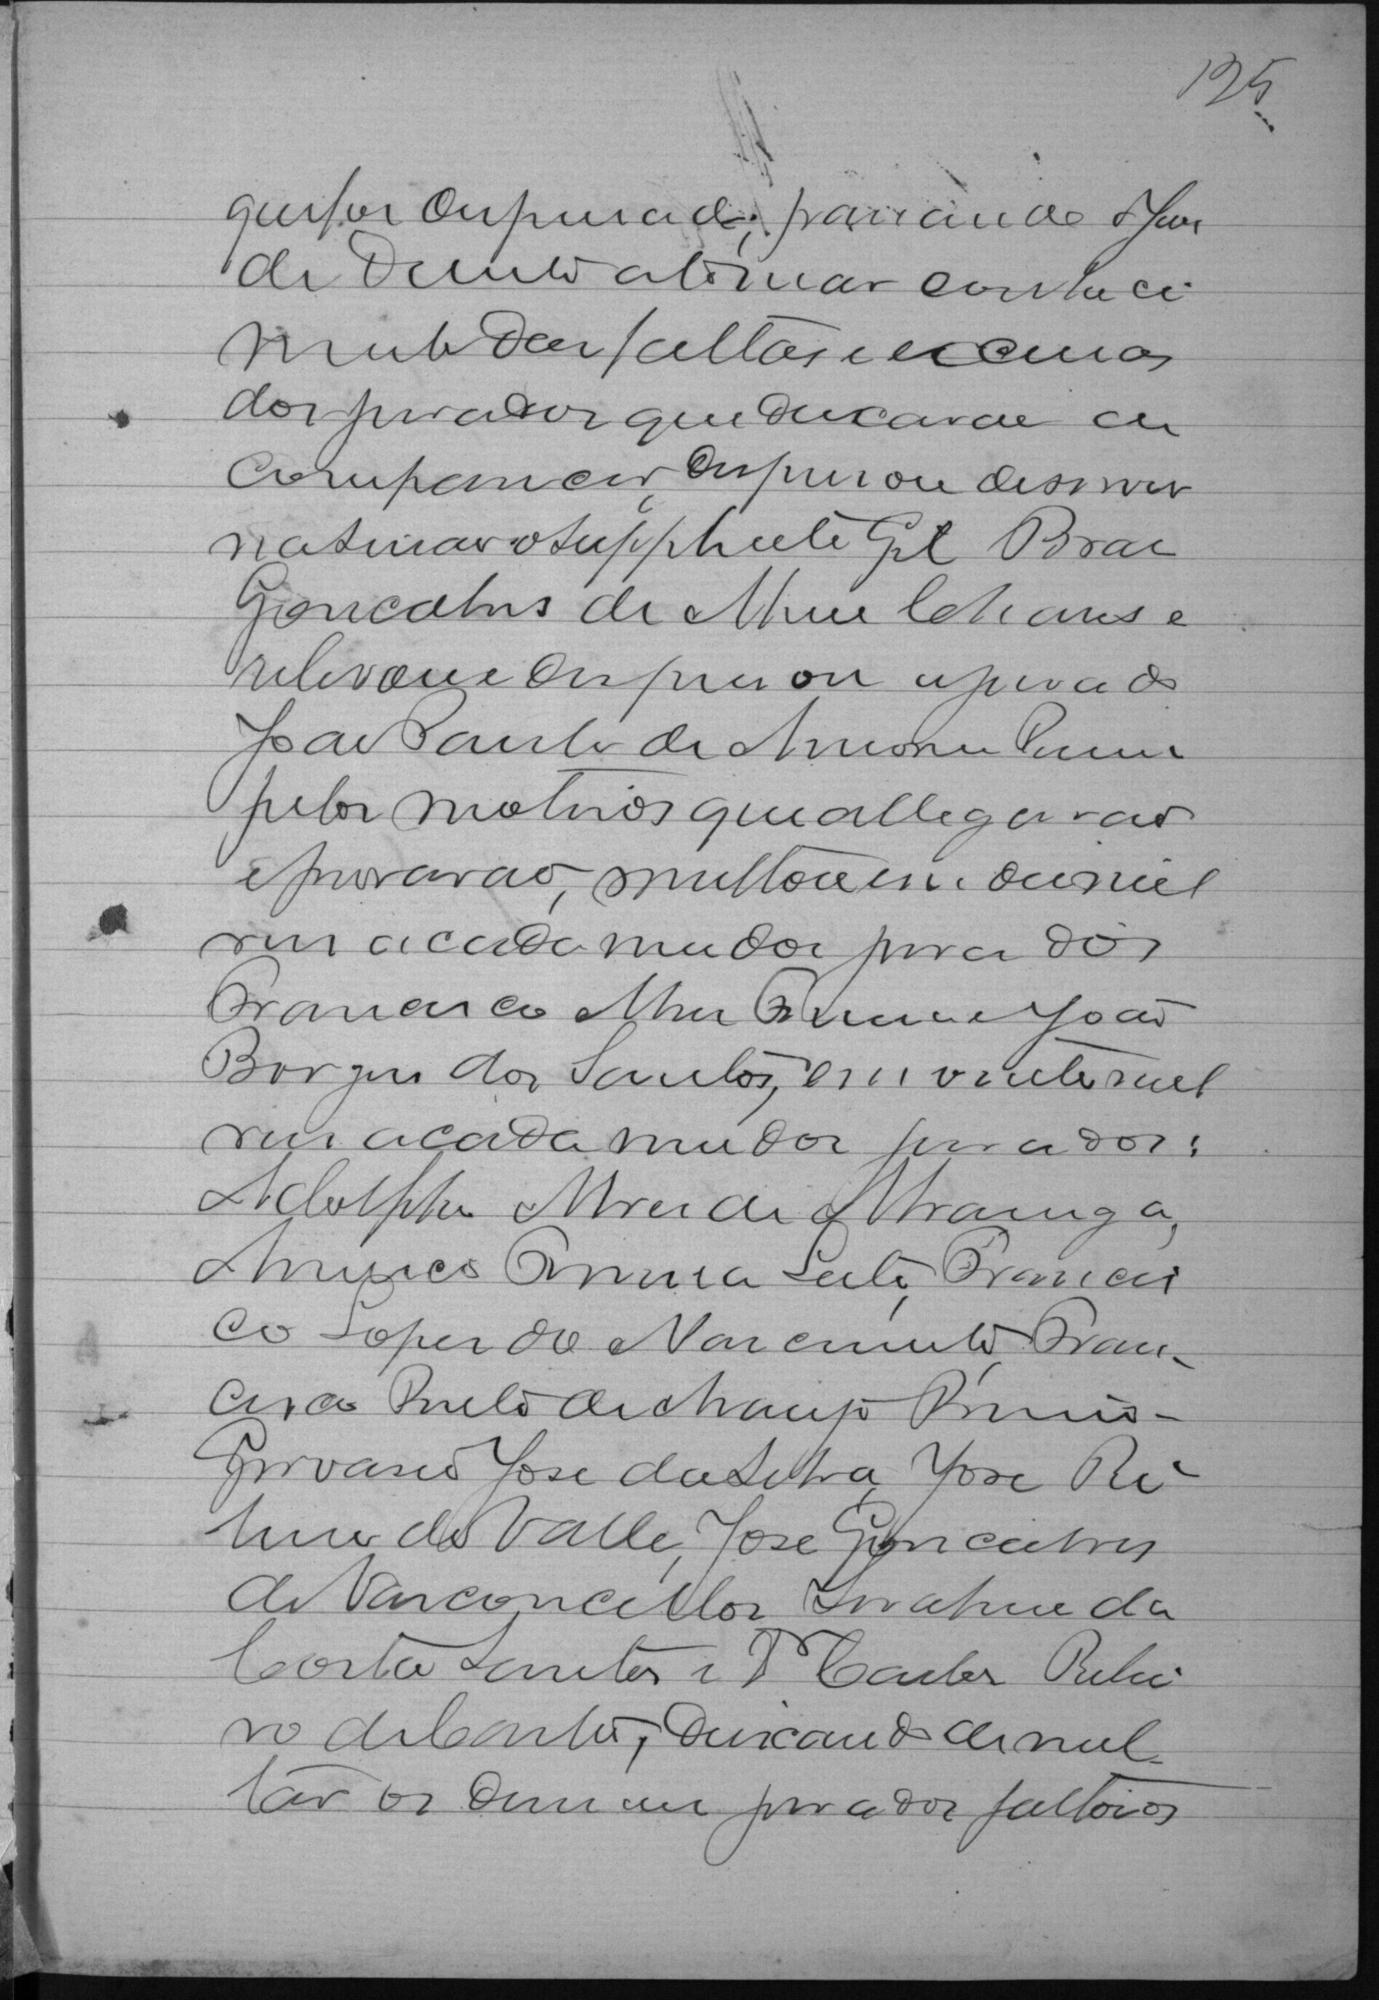 125
que foi dispensado; passando o Juiz
de Direito a tomar conheci
mento das faltas e escusas
dos jurados que deixarão de
comparecer, dispensou de servir
na semana o supplente Gil Braz
Gonçalves de Chaves e
relevou e dispensou o jurado
João Paulo de
pelos motivos que allegarão
e provarão, multou em dez mil
reis a cada um dos jurados
Francisco Alves e João
Borges dos Santos, em vinte mil
reis a cada um dos jurados:
Adolpho Alves de Alvarenga,
Americo Ferreira Leite, Francis
co Lopes do Nascimento, Fran-
cisco Pinto de Araujo
Gervasio José da Silva, José Ri
beiro do Valle, José Gonçalves
de Vasconcellos, da
Costa Santos e Dr Carlos Ribei
ro de Castro, deixando de mul
tar os demais jurados faltosos